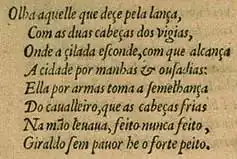 Olha aquelle que deçe pela lança,
Com as duas cabeças dos vigias,
Onde a çilada eſconde, com que alcança
A cidade por manhas & ouſadias:
Ella por armas toma a ſemelhança
Do caualleiro, que as cabeças frias
Na mão leuaua, feito nunca feito,
Giraldo ſem pauor he o forte peito.